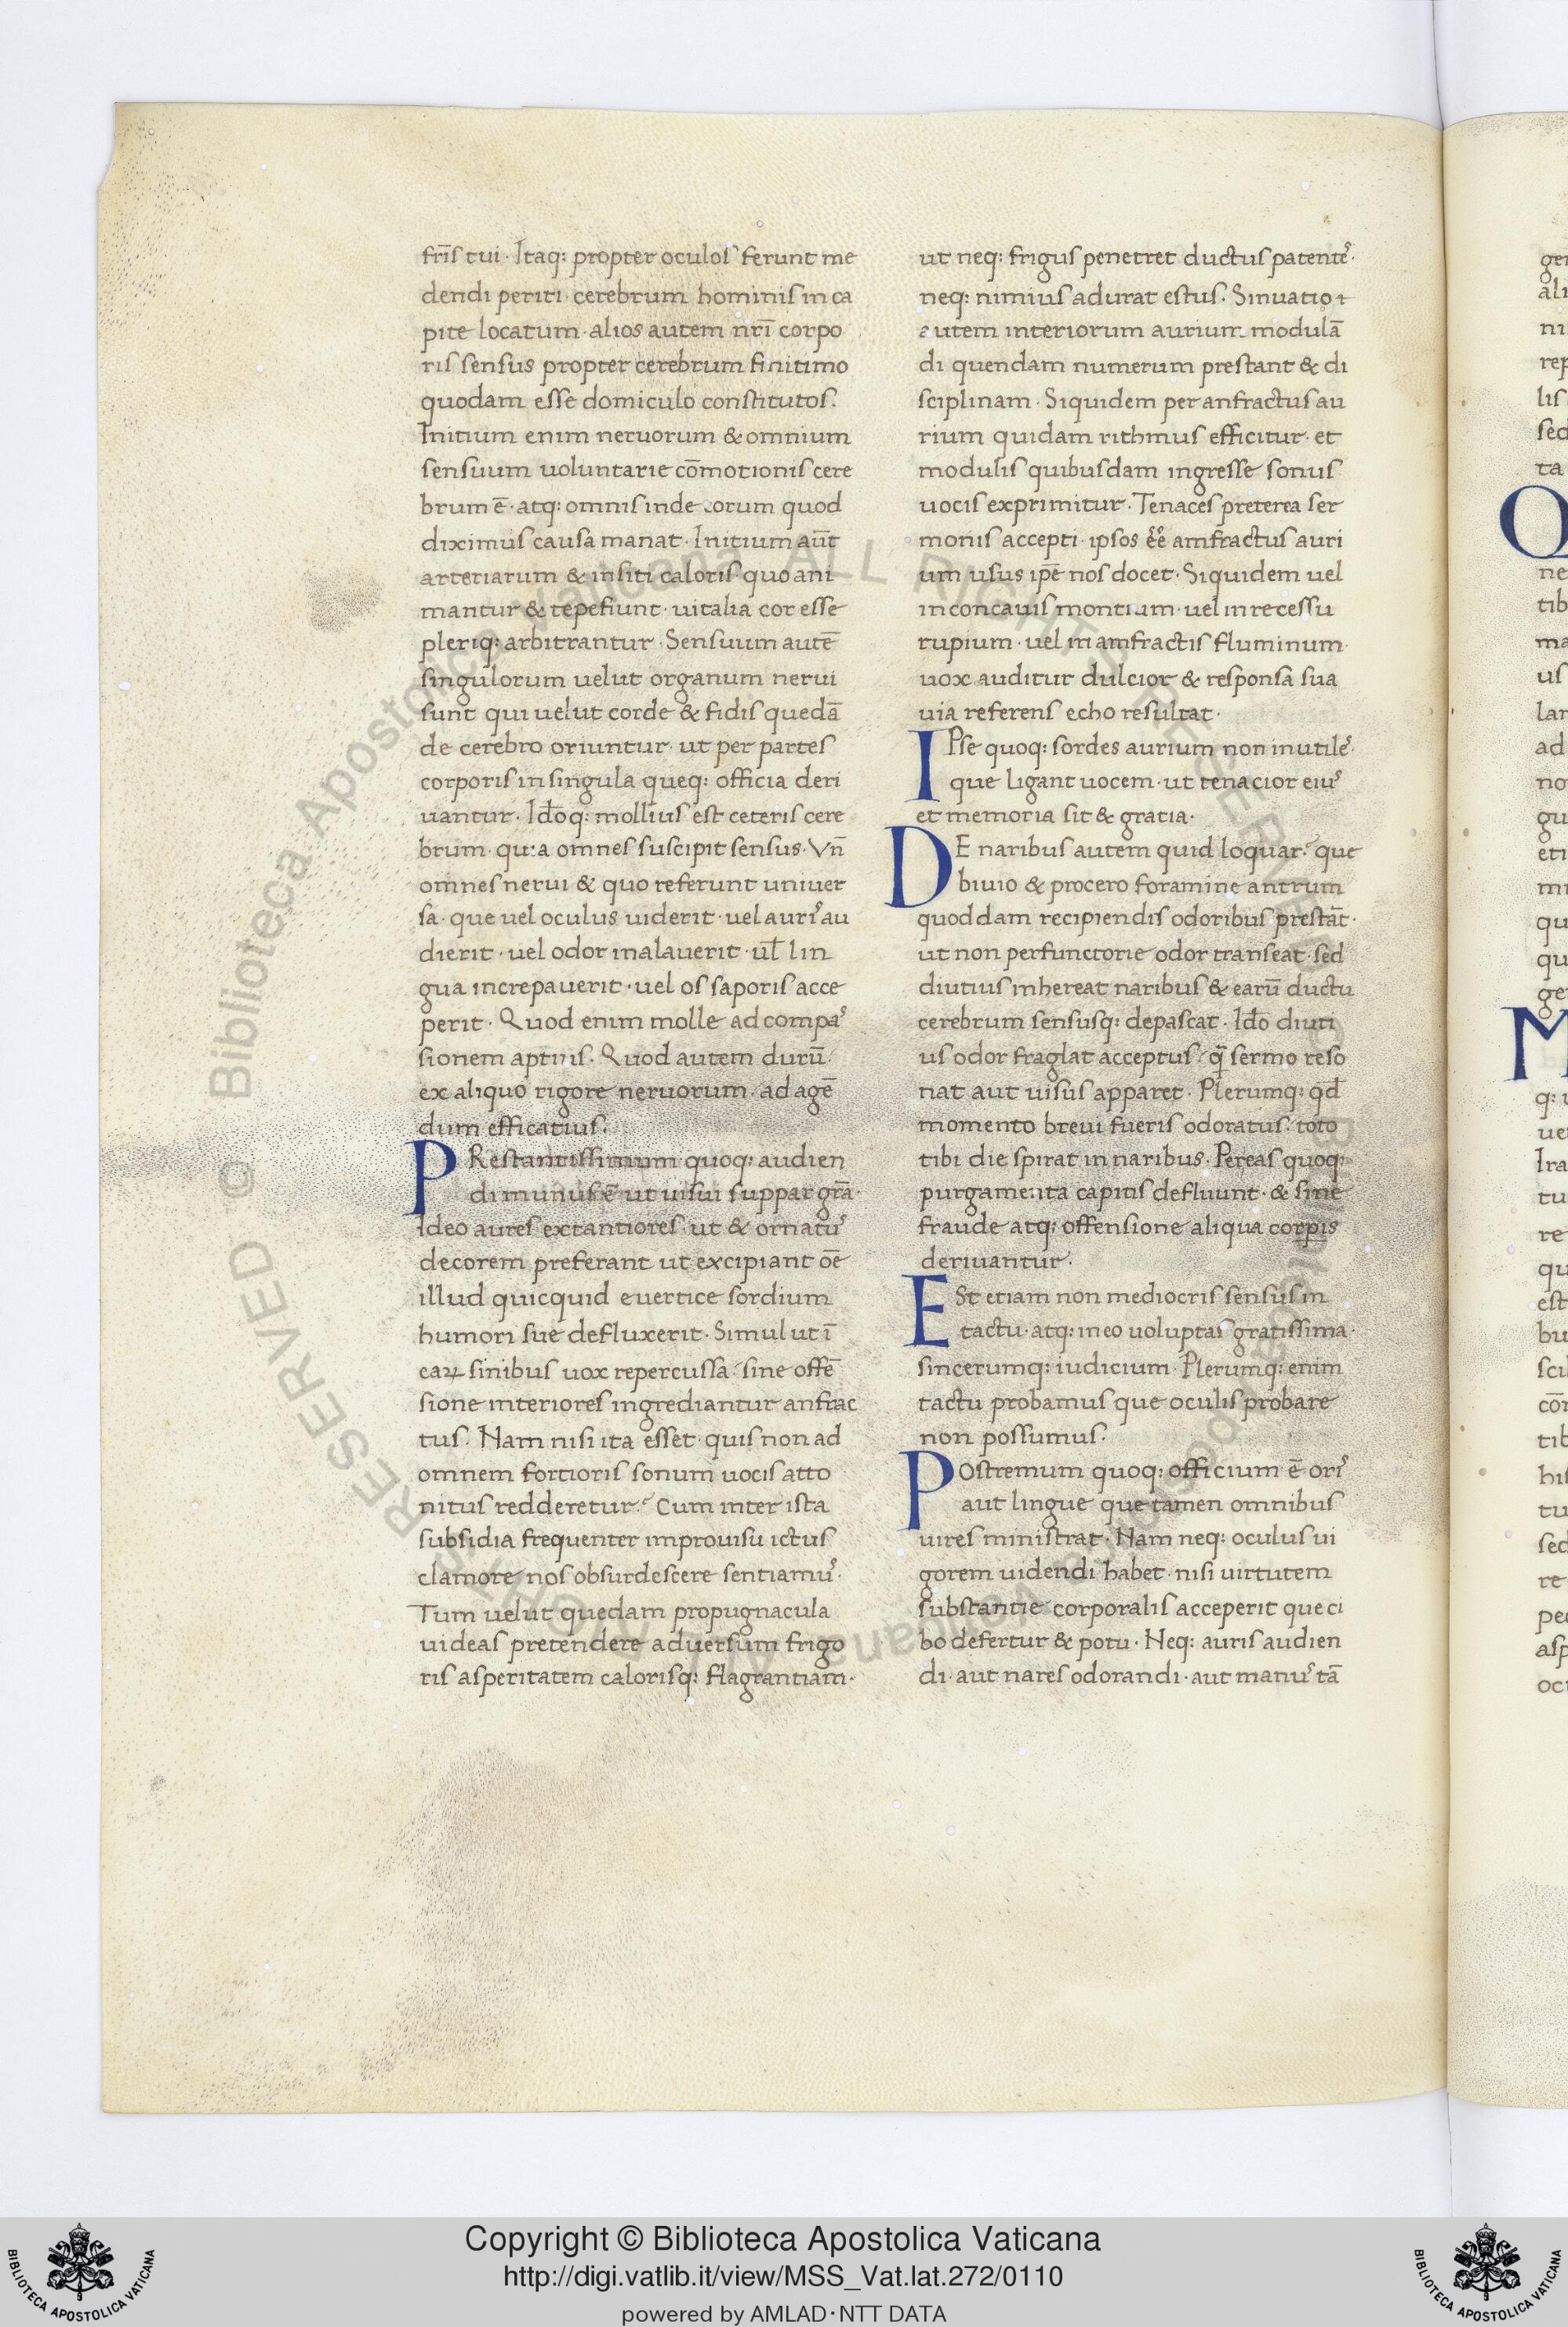 fr̄is tui · Itaq: propter oculos ferunt me
dendi periti · cerebrum hominis in ca
pite locatum · alios autem nr̄i corpo
ris sensus propter cerebrum finitimo
quodam esse domicilio constitutos.
Initium enim neruorum & omnium
sensuum uoluntarie cōmotionis cere
brum ē · atq: omnis inde eorum quod
diximus causa manat · Initium aūt
arteriarum & insiti caloris · quo ani
mantur & tepefiunt · uitalia cor esse
pleriq: arbitrantur · Sensuum autē
singulorum uelut organum nerui
sunt qui uelut corde & fidis quedā
de cerebro oriuntur · ut per partes
corporis in singula queq: officia deri
uantur · Id̄oq: mollius est ceteris cere
brum · quia omnes suscipit sensus · Vn̄
omnes nerui & quo referunt uniuer
sa · que uel oculus uiderit · uel auris au
dierit · uel odor inalauerit · ul̄ lin
gua increpauerit · uel os saporis acce
perit · Quod enim molle ad compas
sionem aptius · Quod autem durū ·
ex aliquo rigore neruorum · ad agē
dum efficatius ·
PRestantissimum quoq: audien
di munus ē ut uisui suppar gr̄a ·
Ideo aures extantiores · ut & ornatus
decorem preferant ut excipiant oē
illud quicquid e uertice sordium
humoris ue defluxerit · Simul ut ī
eaꝝ sinibus uox repercussa · sine offē
sione interiores ingrediantur anfrac
tus · Nam nisi ita esset · quis non ad
omnem fortioris sonum uocis atto
nitus redderetur? Cum inter ista
subsidia frequenter improuisu ictus
clamore nos obsurdescere sentiamus ·
Tum uelut quedam propugnacula
uideas pretendere aduersum frigo
ris asperitatem calorisq: flagrantiam ·
ut neq: frigus penetret ductus patentes ·
neq: nimius adurat estus · Sinuatio
autem interiorum aurium modulā
di quendam numerum prestant & di
sciplinam · Siquidem per anfractus au
rium quidam rithmus efficitur · et
modulis quibusdam ingresse sonus
uocis exprimitur · Tenaces preterea ser
monis accepti · ipsos ēē amfractus auri
um usus ip̄e nos docet · Siquidem uel
in concauis montium · uel in recessu
rupium · uel in amfractis fluminum ·
uox auditur dulcior & responsa sua
uia referens echo resultat ·
IPse quoq: sordes aurium non inutiles ·
que ligant uocem · ut tenacior eius
et memoria sit & gratia ·
DE naribus autem quid loquar? que
biuio & procero foramine antrum
quoddam recipiendis odoribus prestāt ·
ut non perfunctorie odor transeat · sed
diutius inhereat naribus & earū ductu
cerebrum sensusq: depascat · Id̄o diuti
us odor fraglat acceptus · q̄ sermo reso
nat aut uisus apparet · Plerumq: qd̄
momento breui fueris odoratus · toto
tibi die spirat in naribus · Per eas quoq:
purgamenta capitis defluunt · & sine
fraude atq: offensione aliqua corꝑis
deriuantur ·
ESt etiam non mediocris sensus in
tactu · atq: in eo uoluptas gratissima ·
sincerumq: iudicium · Plerumq: enim
tactu probamus que oculis probare
non possumus ·
POstremum quoq: officium ē oris
aut lingue que tamen omnibus
uires ministrat · Nam neq: oculus ui
gorem uidendi habet · nisi uirtutem
substantie corporalis acceperit que ci
bo defertur & potu · Neq: auris audien
di · aut nares odorandi · aut manus tā
Copyright © Biblioteca Apostolica Vaticana
http://digi.vatlib.it/view/MSS_Vat.lat.272/0110
powered by AMLAD·NTT DATA
BIBLIOTECA APOSTOLICA VATICANA
BIBLIOTECA APOSTOLICA VATICANA